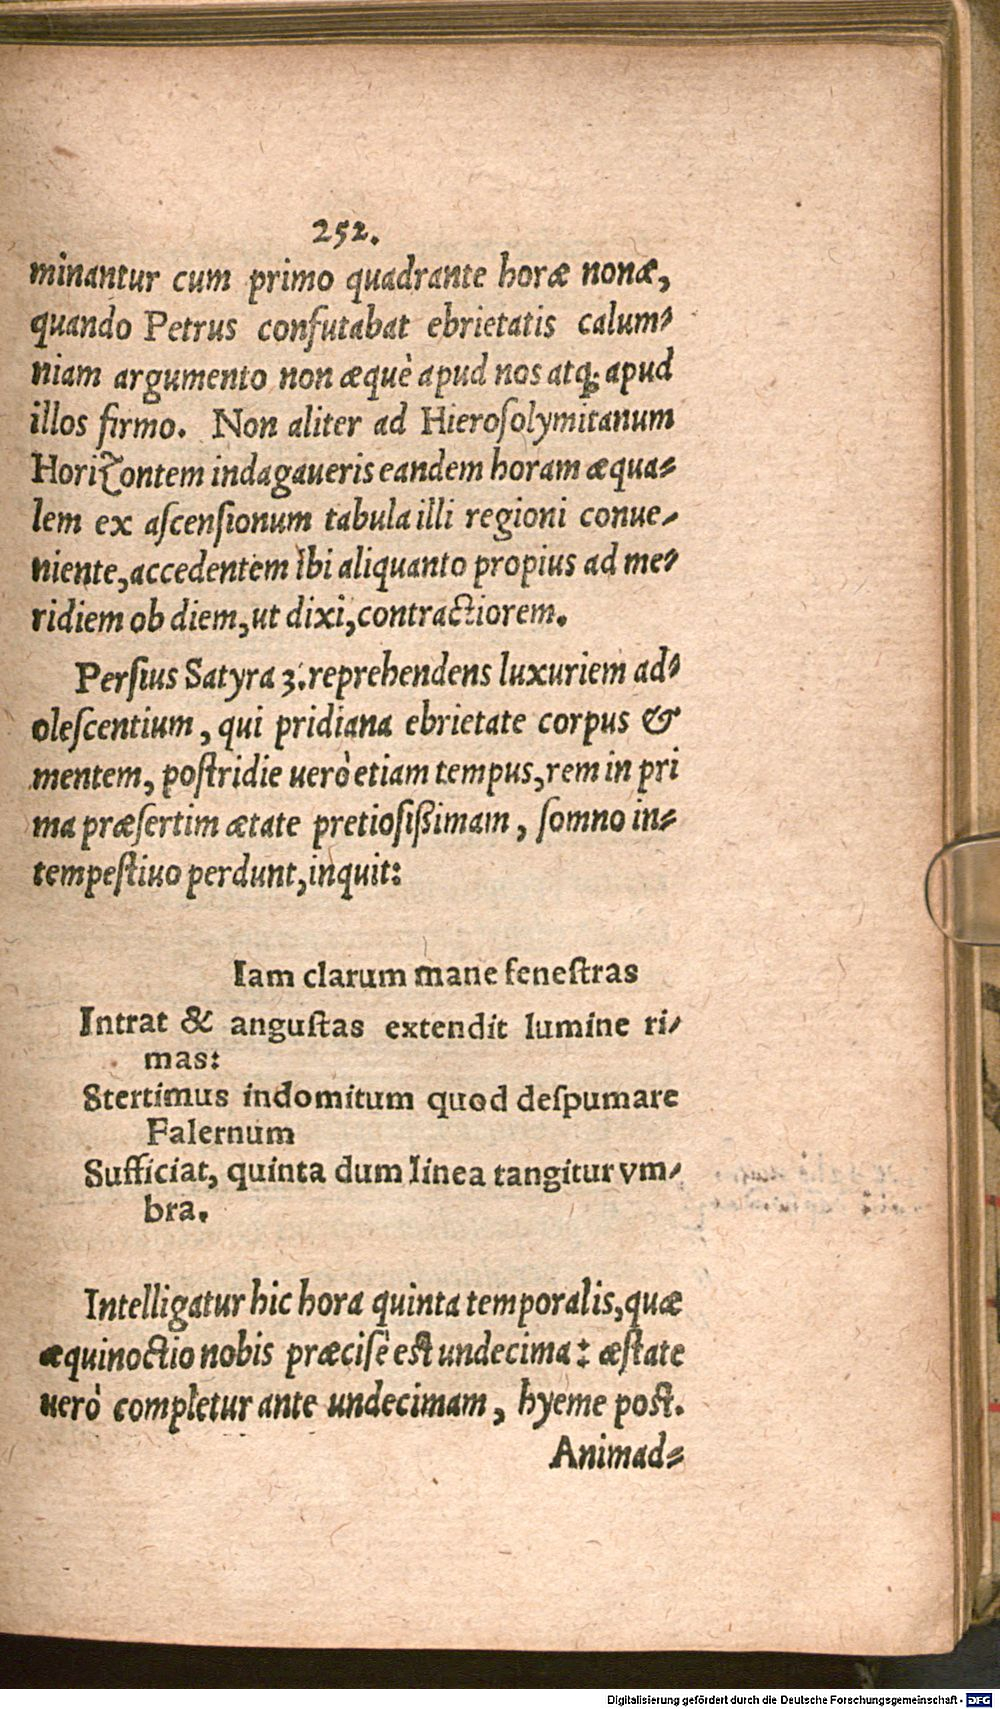 252.
minantur cum primo quadrante horæ nonæ,
quando Petrus confutabat ebrietatis calum-
niam argumento non æquè apud nos atq; apud
illos firmo. Non aliter ad Hierosolymitanum
Horizontem indagaueris eandem horam æqua-
lem ex ascensionum tabula illi regioni conue-
niente, accedentem ibi aliquanto propius ad me-
ridiem ob diem, ut dixi, contractiorem.
Persius Satyra 3. reprehendens luxuriem ad-
olescentium, qui pridiana ebrietate corpus &
mentem, postridie uerò etiam tempus, rem in pri
ma præsertim ætate pretiosißimam, somno in-
tempestiuo perdunt, inquit:
Iam clarum mane fenestras
Intrat & angustas extendit lumine ri-
mas:
Stertimus indomitum quod despumare
Falernum
Sufficiat, quinta dum linea tangitur vm-
bra.
Intelligatur hic hora quinta temporalis, quæ
æquinoctio nobis præcisè est undecima: æstate
uerò completur ante undecimam, hyeme post.
Animad-
Digitalisierung gefördert durch die Deutsche Forschungsgemeinschaft - DFG